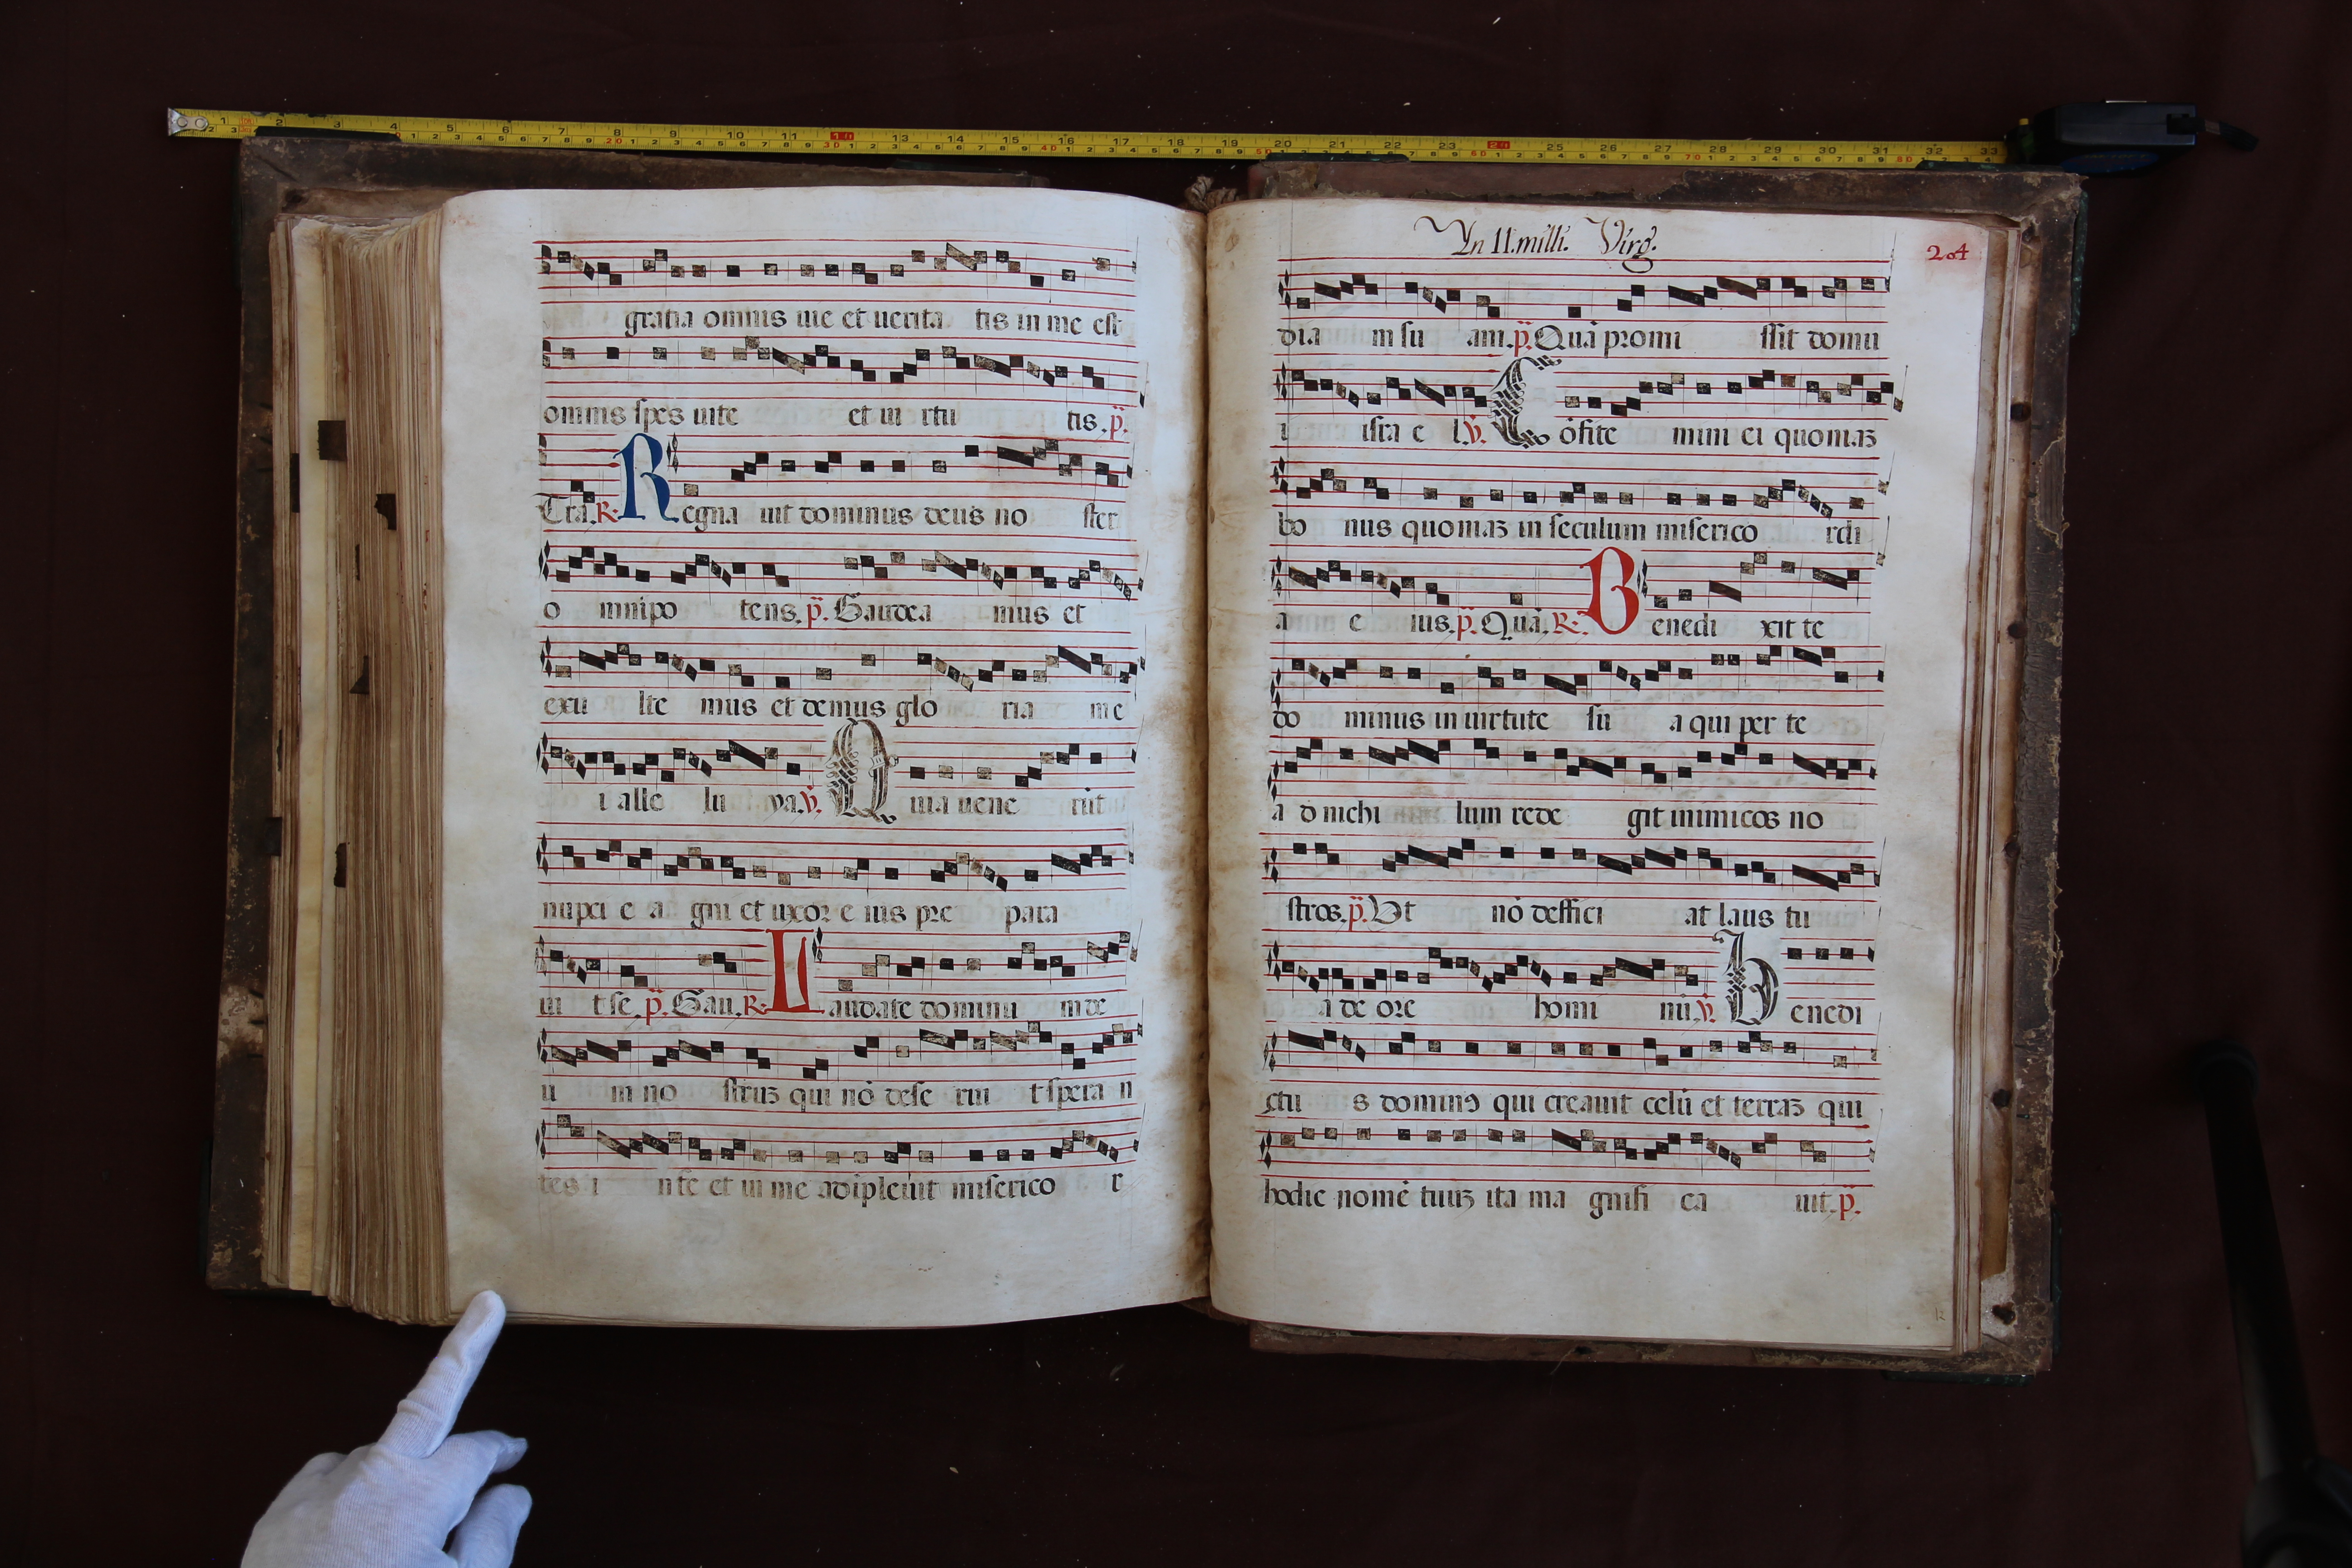 gratia omnis uie et uerita tis in me est
omnis spes uite et ui rtu tis. p̃.
Tra. R. Regna uit dominus deus no ster
o mnipo tens. p̃. Gaudea mus et
exu lte mus et demus glo ria me
i alle lu ya. v̇. Quia uene rūt
nupci e a gni et uxor e ius pre para
ui t se. p̃. Gau. R. Laudate dominū m de
u m no struʒ qui nō dese rui t spera n
tes i n se et in me adipleuit miserico r
In 11. mill̃. Virg.
204
dia m su am. p̃. Quā promi ssit domu
i isra e l. v̇. Cōfite mini ei quoniaʒ
bo nus quoniaʒ in seculum miserico rdi
a e ius. p̃. Quā. R. Benedi xit te
do minus in uirtute su a qui per te
a d nichi lum rede git inimicos no
stros. p̃. Vt nō deffici at laus tu
a de ore homi nū. v̇. Benedi
ctu s dominꝰ qui creauit celū et terraʒ qui
hodie nomē tuuʒ ita ma gnifi ca uit. p̃.